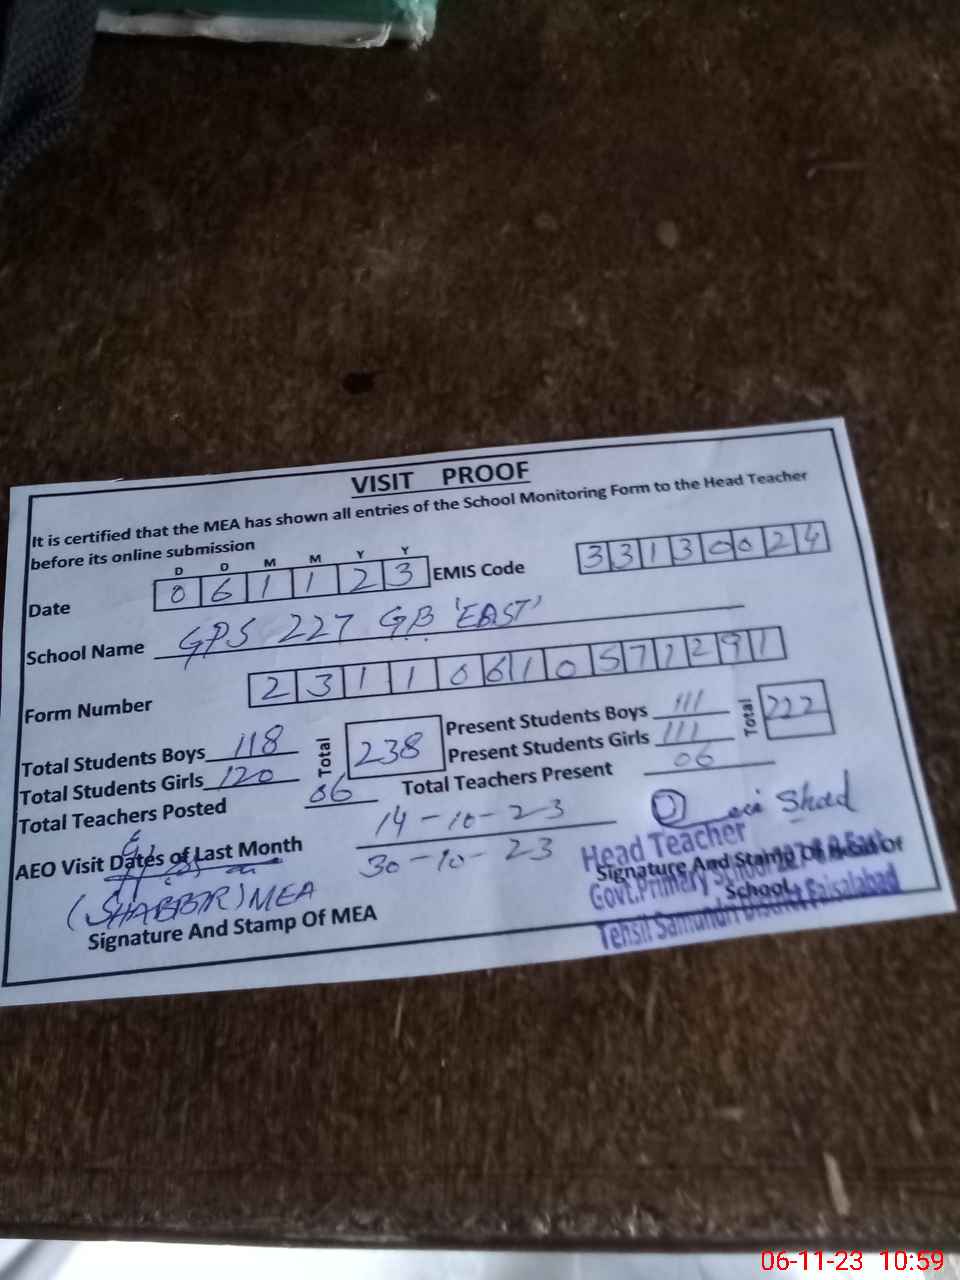 VISIT PROOF
It is certified that the MEA has shown all entries of the School Monitoring Form to the Head Teacher
before its online submission
D D M M Y Y
Date 0 6 1 1 2 3 EMIS Code 3 3 1 3 0 0 2 4
School Name GPS 227 GB 'EAST'
Form Number 2 3 1 1 0 6 1 0 5 7 1 2 9 1
Total Students Boys 118 Total 238 Present Students Boys 111 Total 222
Total Students Girls 120 Present Students Girls 111
Total Teachers Posted 06 Total Teachers Present 06
AEO Visit Dates of Last Month 14-10-23
30-10-23
(SHABBIR) MEA
Signature And Stamp Of MEA
Head Teacher
Signature And Stamp Of Head Of
School
Govt.Primary School 227 G.B East
Tehsil Samundri District Faisalabad
06-11-23 10:59